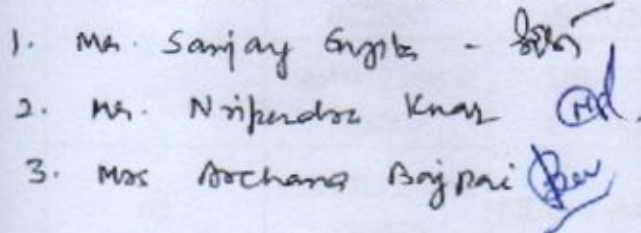 1. Mr. Sanjay Gupta -
2. Mr. Nripendra Kumar
3. Mrs Archana Bajpai